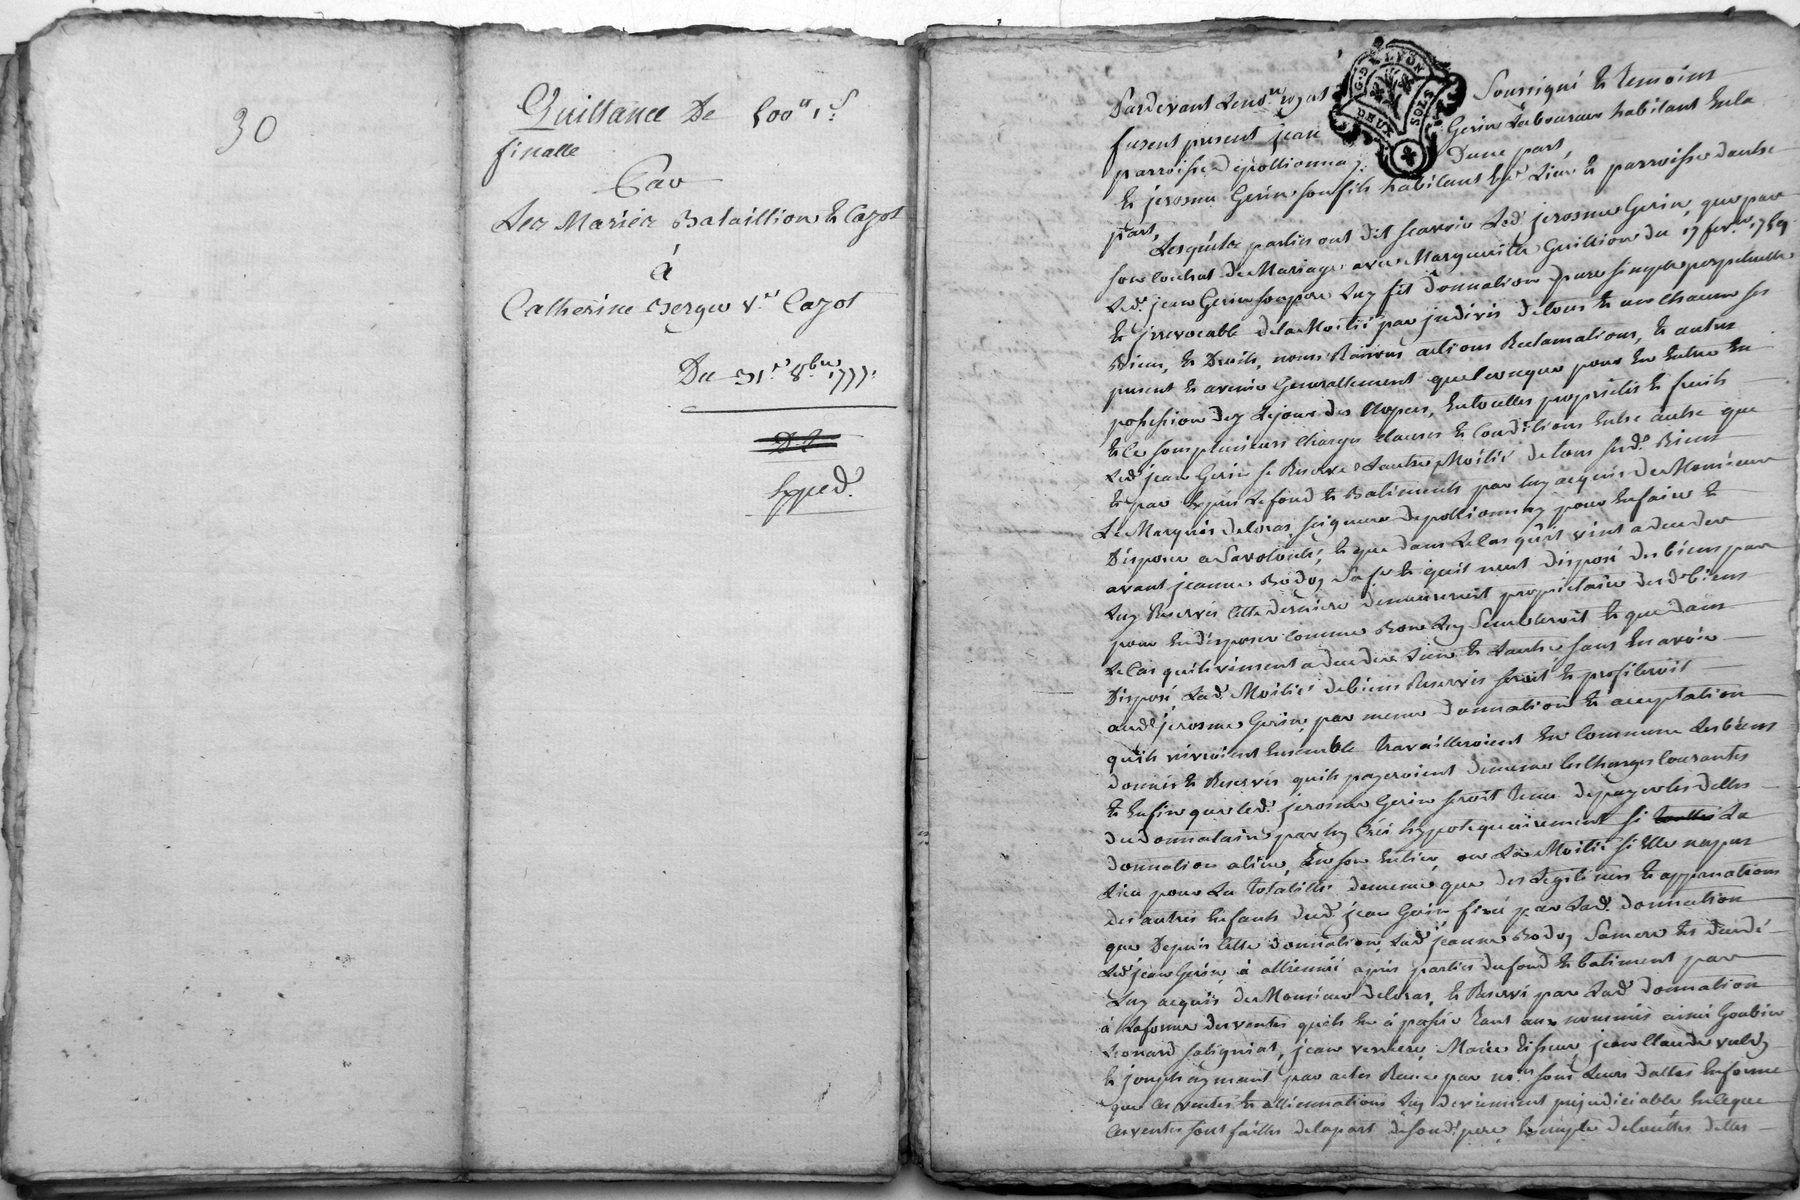 30
Quittance De 500ᵗᵗ 1ˢ
finalle
Par
Les Mariés Bataillion & Cazot
à
Catherine Berger Vᵉ Cazot
Du 31ᵉ 8bre 1777.
Exped.
G. DE LYON
DEUX SOLS
Pardevant Le noʳᵉ royal Soussigné & temoins
furent present jean Gerin Laboureur habitant en la
parroisse de pollionnay D'une part,
& jerosme Gerin son fils habitant susd. Lieu & parroisse dautre
part,
Lesquelles parties ont dit scavoir Led. jerosme Gerin, que par
son contrat de Mariage avec Marguerite Guillion du 19 fevʳ 1759
Led. jean Gerin son pere luy fit Donnation pure simple perpetuelle
& jrrevocable de la Moitié par jndivis de tous & un chacun ses
Biens, & Droits, noms Raisons actions Reclamations, & autres
present & avenir Generallement quelconque pour en entrer en
possession dez Lejour des Nopces, en toutes proprietés & fruits
& ce sous plusieurs charges clauses & conditions entre autre que
Led. jean Gerin se Reserve Lautre Moitié de tous sesd. Biens
& par exprès Le fond & Batiments par luy acquis de Monsieur
Le Marquis deloras seigneur de pollionnay pour en faire &
Disposer a sa volonté, & que dans Le Cas quil vint a deceder
avant jeanne Boday sa fe & quil neut disposé des biens par
luy Reservés cette derniere demeureroit proprietaire desd. biens
pour en disposer comme Bon luy sembleroit & que dans
Le Cas quils vinssent a deceder Lun & Lautre, sans en avoir
Disposé, Lad. Moitié de biens Reservés seroit & profiteroit
aud. jerosme Gerin, par meme donnation & acceptation
quils vivroient ensemble travailleroient en commun Les biens
donnés & Reservés quils payeroient de meme les charges courantes
& enfin que led. jerosme Gerin seroit tenu de payer les dettes
du donnataire par luy Créé hypotequairement si La
donnation a lieu, en son entier, ou La Moitié si Elle na pas
Lieu pour La totalitté, de meme que des Legitimes &
des autres enfants dud. jean Gerin fixé par Lad. donnation
que Depuis Cette donnation, Lad. jeanne Boday sa mere est decedé
Led. jean Gerin, à allienné après partie du fond & batiment par
luy acquis de Monsieur deloras, & Reservé par Lad. donnation
à La forme des ventes quils en à passé tant aux nommés aimé Goubier
Leonard, jean verriere Marie, jean Claude
& joseph aymard par actes Receu par noʳᵉˢ sous Leurs dattes en forme
que Ces ventes & alliennations luy deviennent prejudiciable en ce que
Ces ventes sont faittes de la part de sond. pere, & remplis de touttes dettes